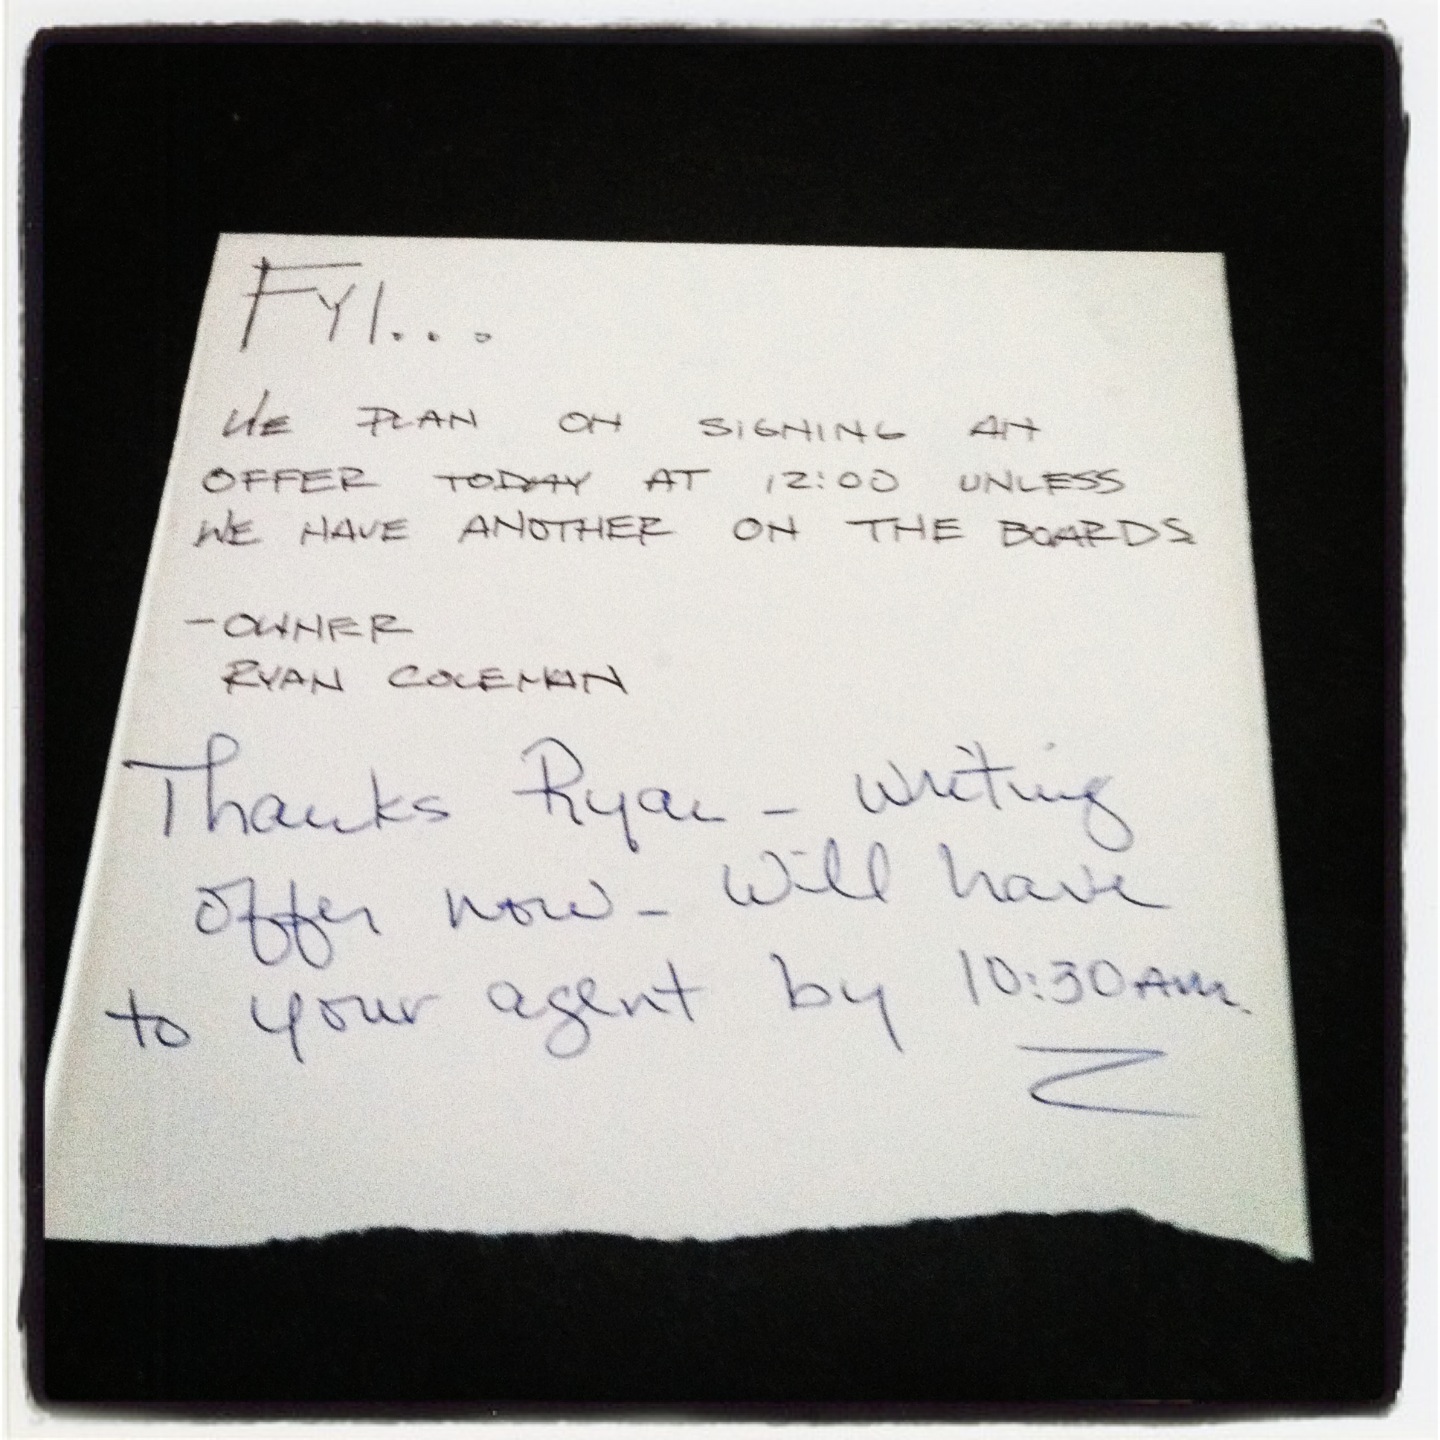 FYI...
WE PLAN ON SIGNING AN
OFFER TODAY AT 12:00 UNLESS
WE HAVE ANOTHER ON THE BOARDS
- OWNER
RYAN COLEMAN
Thanks Ryan - writing
offer now - will have
to your agent by 10:30 AM.